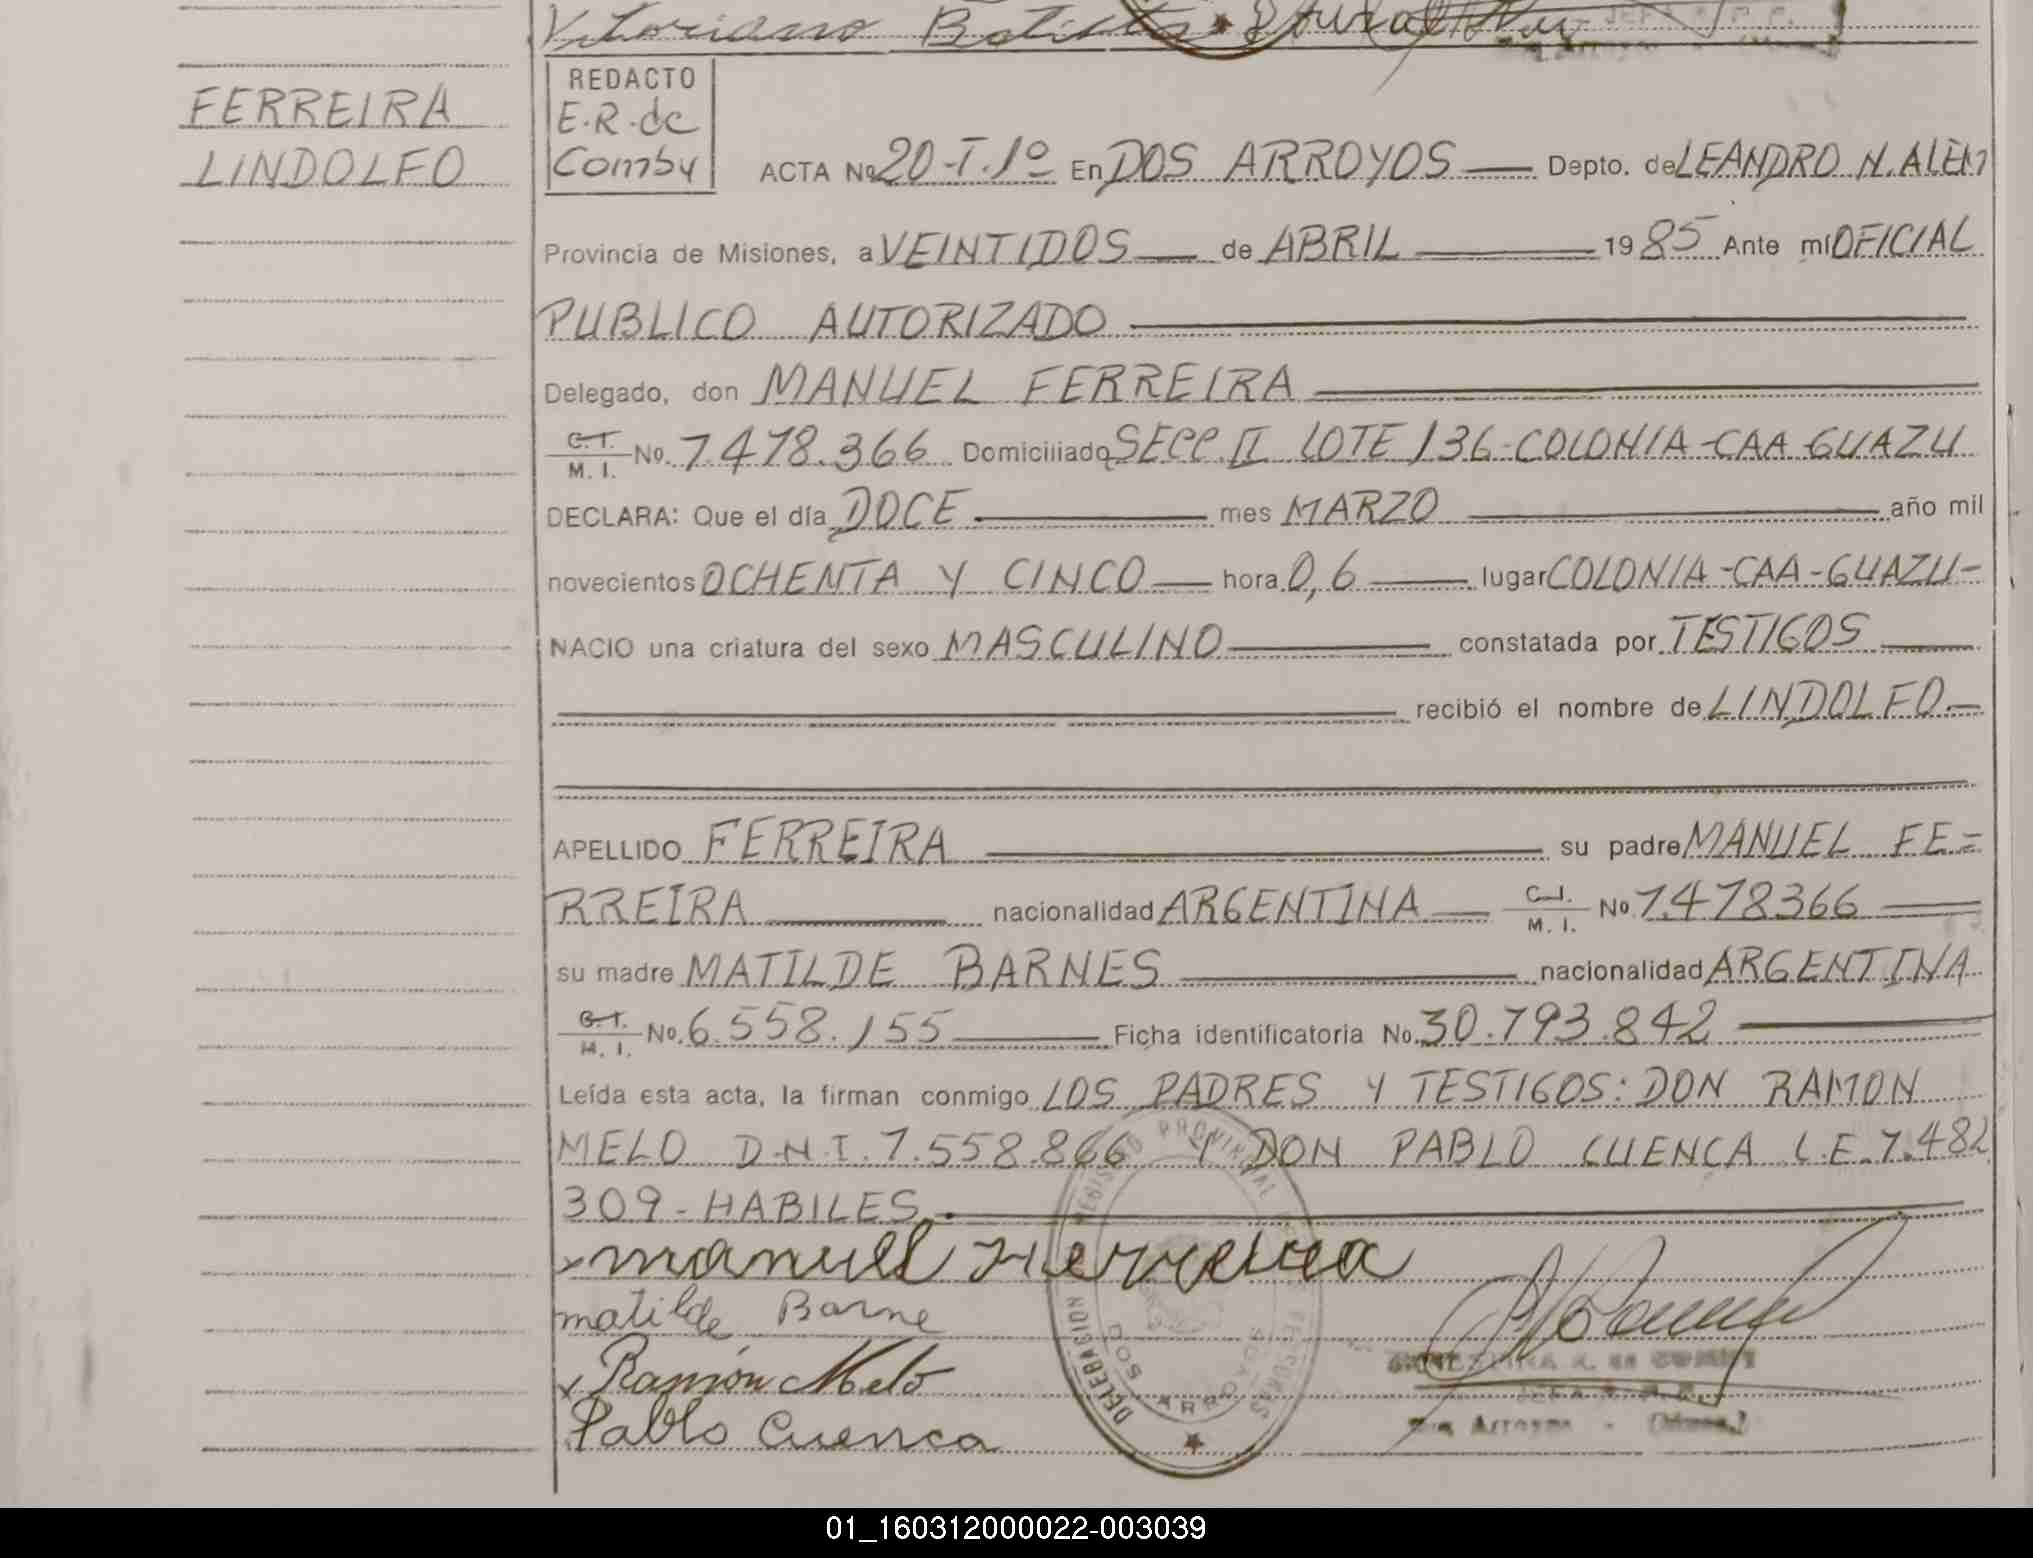 Vitoriano Batista
FERREIRA
LINDOLFO
REDACTO
E.R.de
Comby
ACTA No 20-T.1º En DOS ARROYOS Depto. de LEANDRO N. ALEM
Provincia de Misiones, a VEINTIDOS de ABRIL 1985 Ante mí OFICIAL
PUBLICO AUTORIZADO
Delegado, don MANUEL FERREIRA
C.I. M.I. No. 7.478.366 Domiciliado SECC. II LOTE 136-COLONIA-CAA-GUAZU
DECLARA: Que el día DOCE mes MARZO año mil
novecientos OCHENTA Y CINCO hora 0,6 lugar COLONIA-CAA-GUAZU-
NACIO una criatura del sexo MASCULINO constatada por TESTIGOS
recibió el nombre de LINDOLFO.
APELLIDO FERREIRA su padre MANUEL FE=
RREIRA nacionalidad ARGENTINA C.I. M.I. No 7.478366
su madre MATILDE BARNES nacionalidad ARGENTINA
C.I. M.I. No. 6.558.155 Ficha identificatoria No. 30.793.842
Leída esta acta, la firman conmigo LOS PADRES Y TESTIGOS: DON RAMON
MELO D.N.I. 7.558.866 Y DON PABLO CUENCA L.E. 7.482
309-HABILES.
manuel Ferreira
matilde Barne
Ramón Melo
Pablo Cuenca
DELEGACION REGISTRO PROVINCIAL DE LAS PERSONAS
DOS ARROYOS
Arroyos - (Mnes.)
01_160312000022-003039